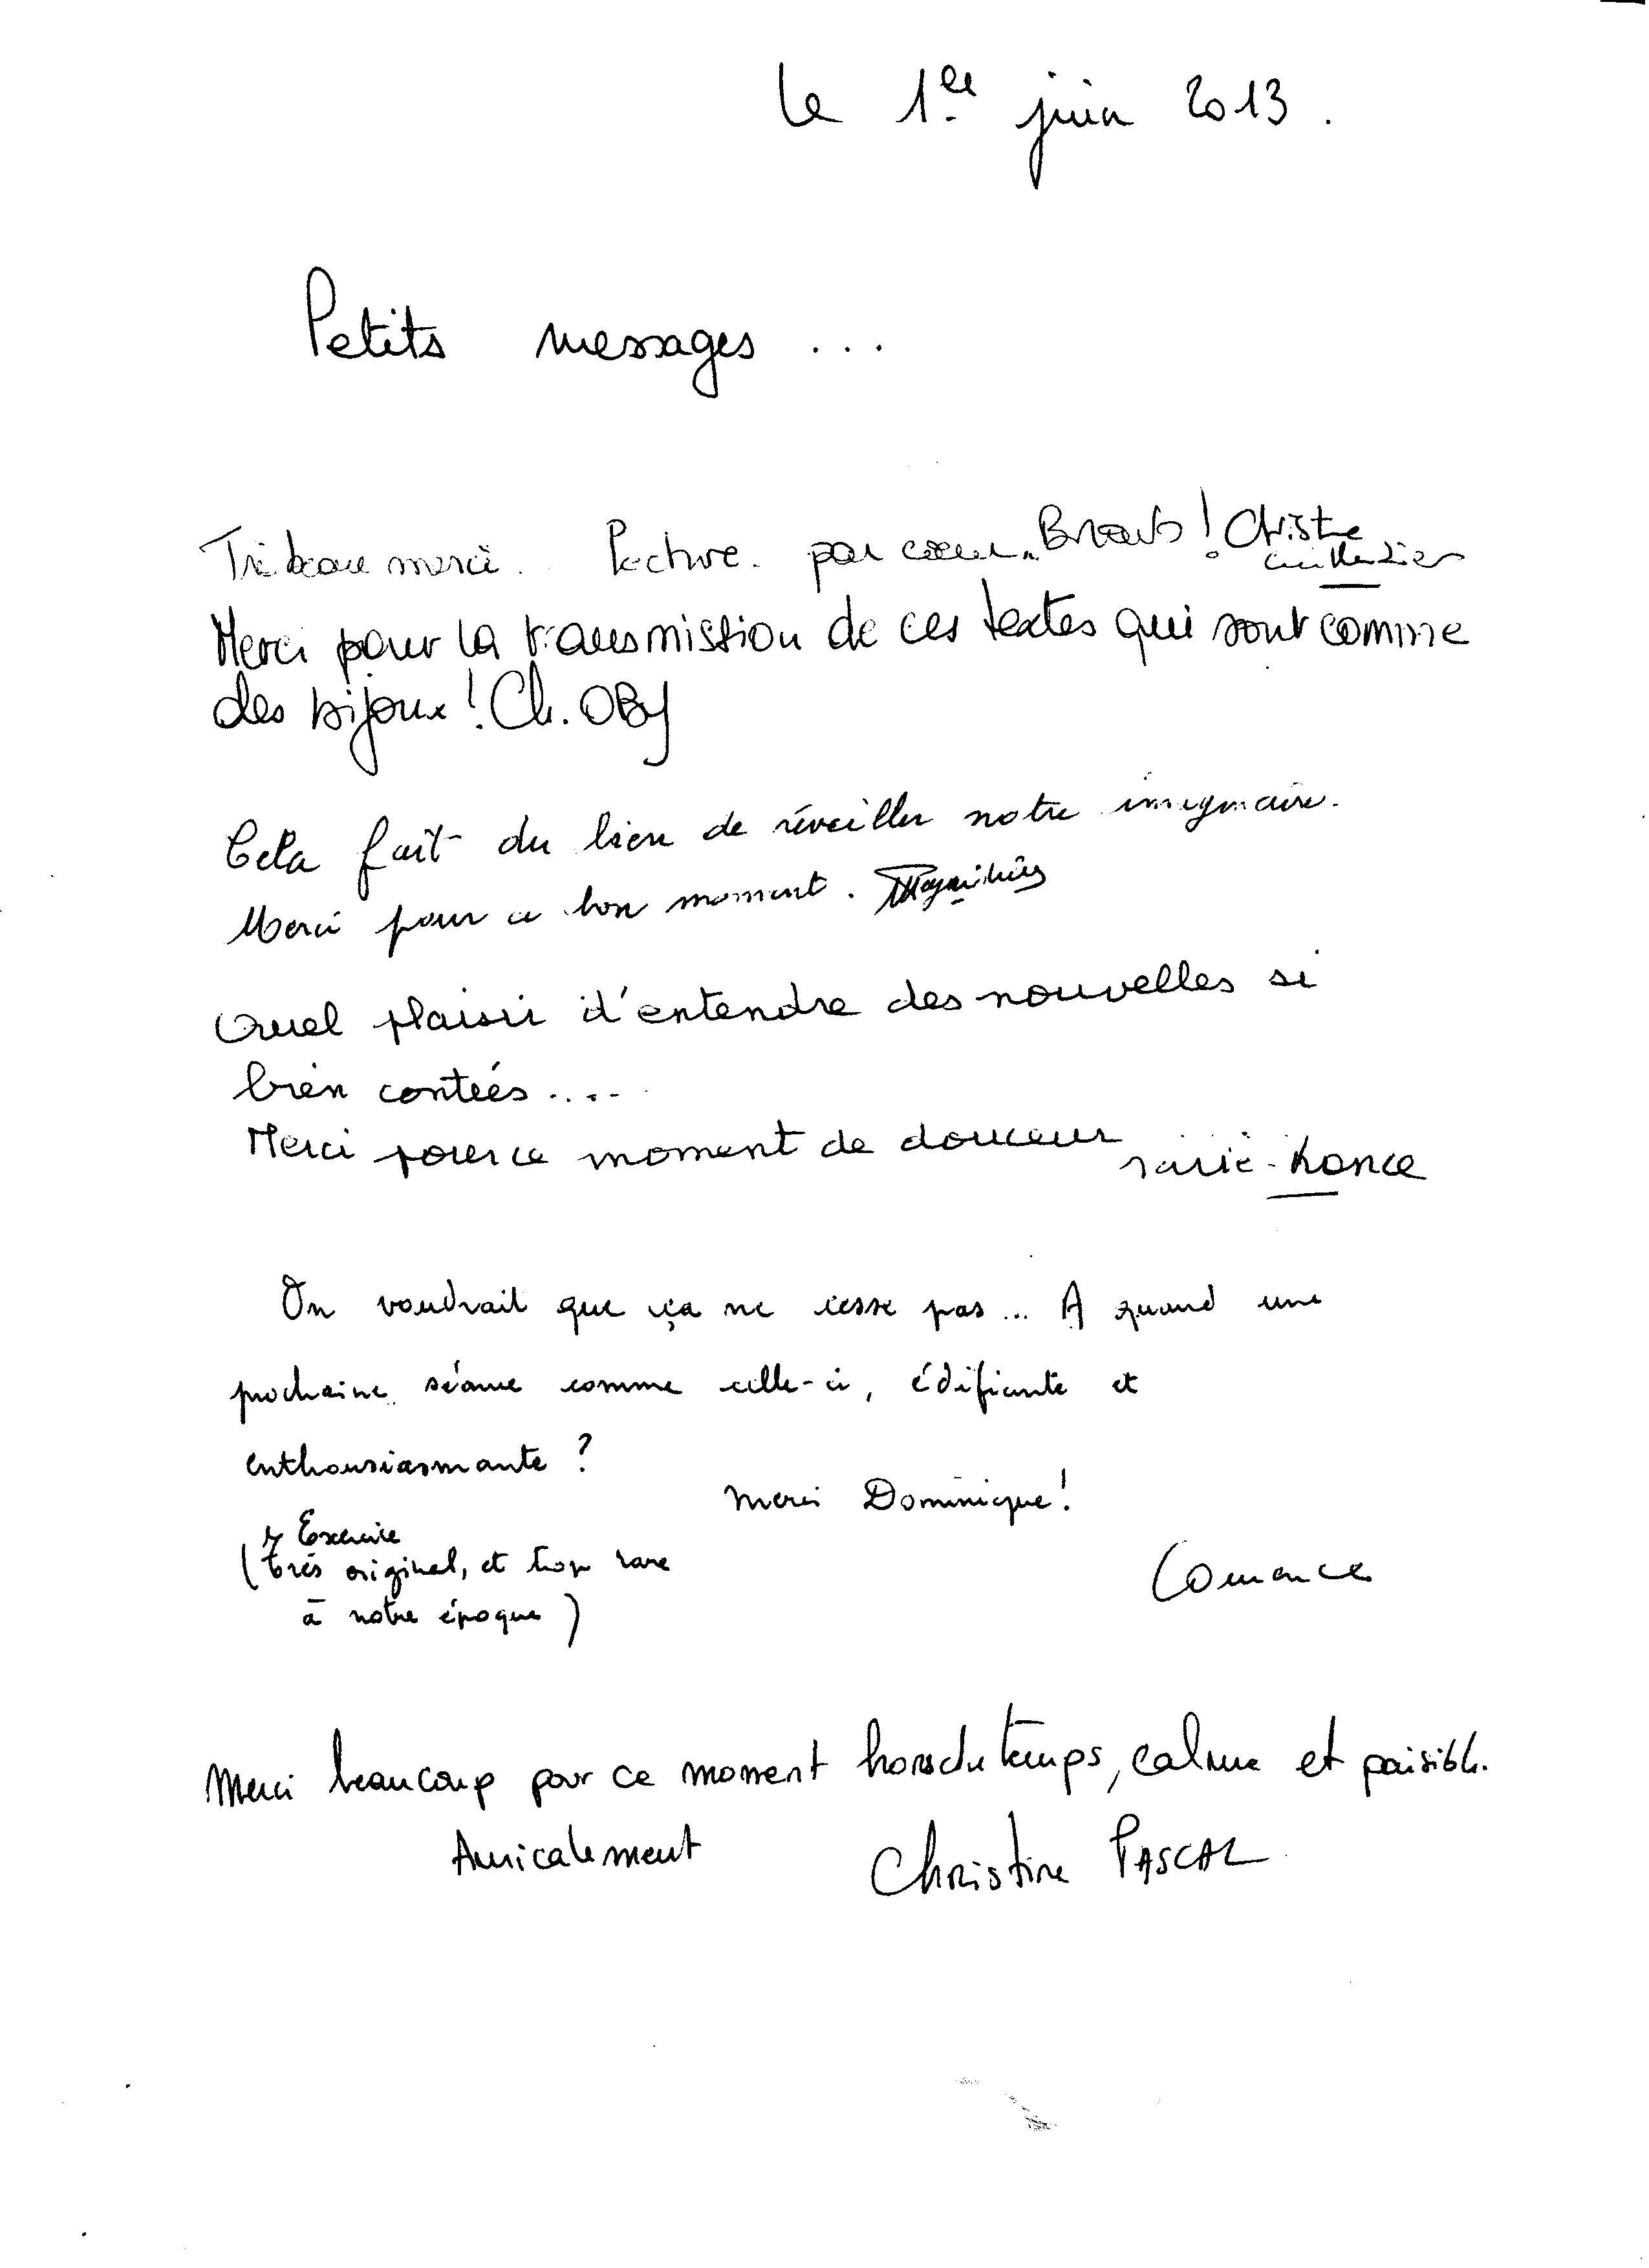 le 1er juin 2013.
Petits messages ...
Très beau merci. Lecture. par coeur. Bravo !
Merci pour la transmission de ces textes qui sont comme
des bijoux ! Ch. OBY
Cela fait du bien de réveiller notre imaginaire.
Merci pour ce bon moment.
Quel plaisir d'entendre des nouvelles si
bien contées....
Merci pour ce moment de douceur
On voudrait que ça ne cesse pas... A quand une
prochaine séance comme celle-ci, édifiante et
enthousiasmante ?
Merci Dominique !
Exercice
(très original, et trop rare
à notre époque)
Merci beaucoup pour ce moment hors du temps, calme et paisible.
Amicalement Christine PASCAL